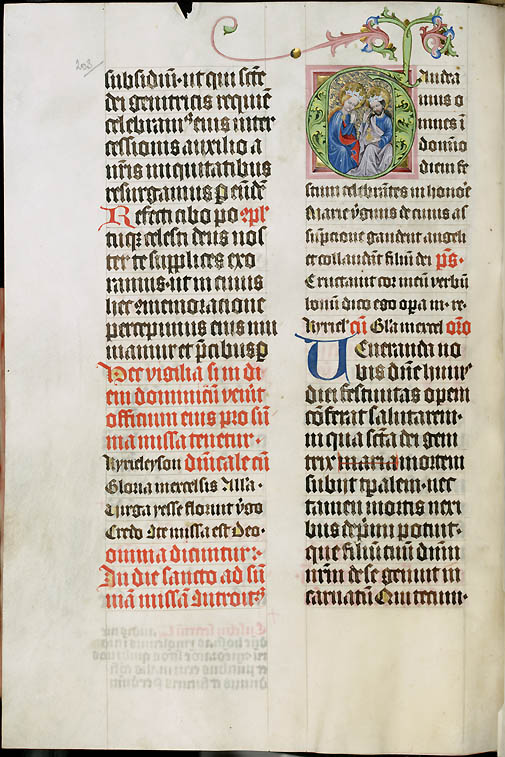 203
subsidiū·ut qui scē
dei genitricis requiē
celebramꝰ eius inter
cessionis auxilio a
nr̄is iniquitatibus
resurgamus ꝑ eūdē
Refecti cibo po Rpl̄
tuqꝫ celesti deus nos
ter te supplices exo
ramus·ut in cuius
hec ꝯmemoracione
percepimus eius mu
niamur et p̄cibus ꝑ
Hec vigilia si in di
em dominicū veīt
officium eius pro sū
ma missa tenetur·
Kyrieleyson dn̄icale cū
Gloria inexcelsis Alla·
Uirga yesse floruit ṽgo
Credo Ite missa est Deo·
omnia dicuntur:
In die sancto ad sū
mā missā Introitꝰ
Gaudea
mus o
mnes ī
domīo
diem fe
stum celebrātes in honore
Marie ṽginis de cuius as
sūpcione gaudent angeli
et collaudāt filiū dei p̄s·
Eructauit cor meū verbū
bonū dico ego opa m· re·
Kyriel· cū Gl̄a inexcel or̄o
Ueneranda no
bis dn̄e huiꝰ
diei festiuitas opem
cōferat salutarem·
in qua scā dei geni
trix maria mortem
subijt tp̄alem·nec
tamen mortis neri
bus dep̄mi potuit·
que filiū tuū dn̄m
nr̄m de se genuit in
carnatū Qui tecum·